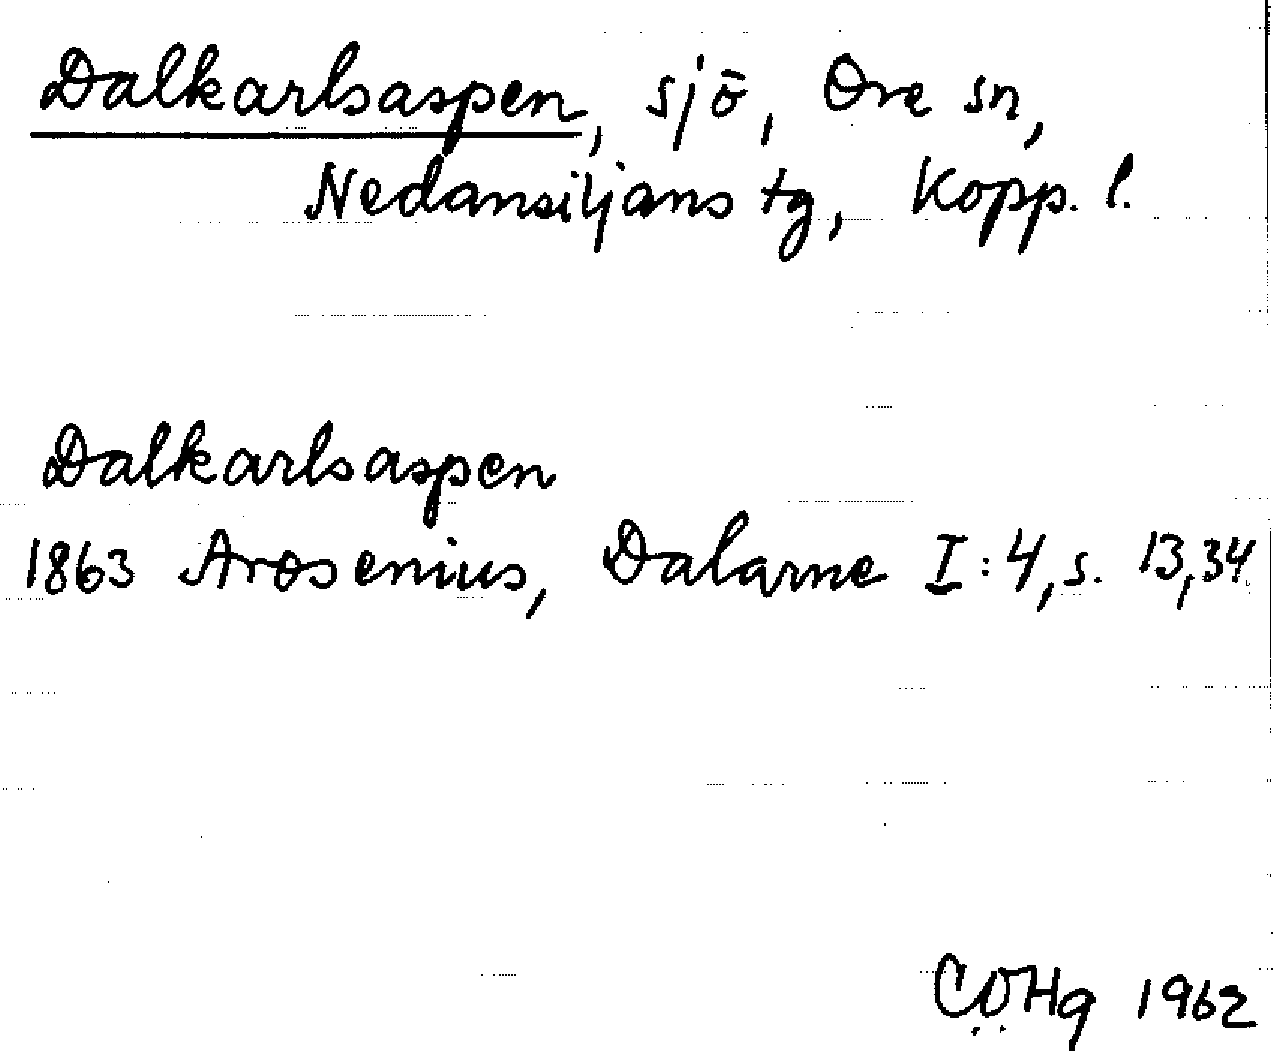 Dalkarlsaspen, sjö, Ore sn,
Nedansiljans tg, Kopp. l.
Dalkarlsaspen
1863 Arosenius, Dalarne I:4, s. 13,34
COHg 1962